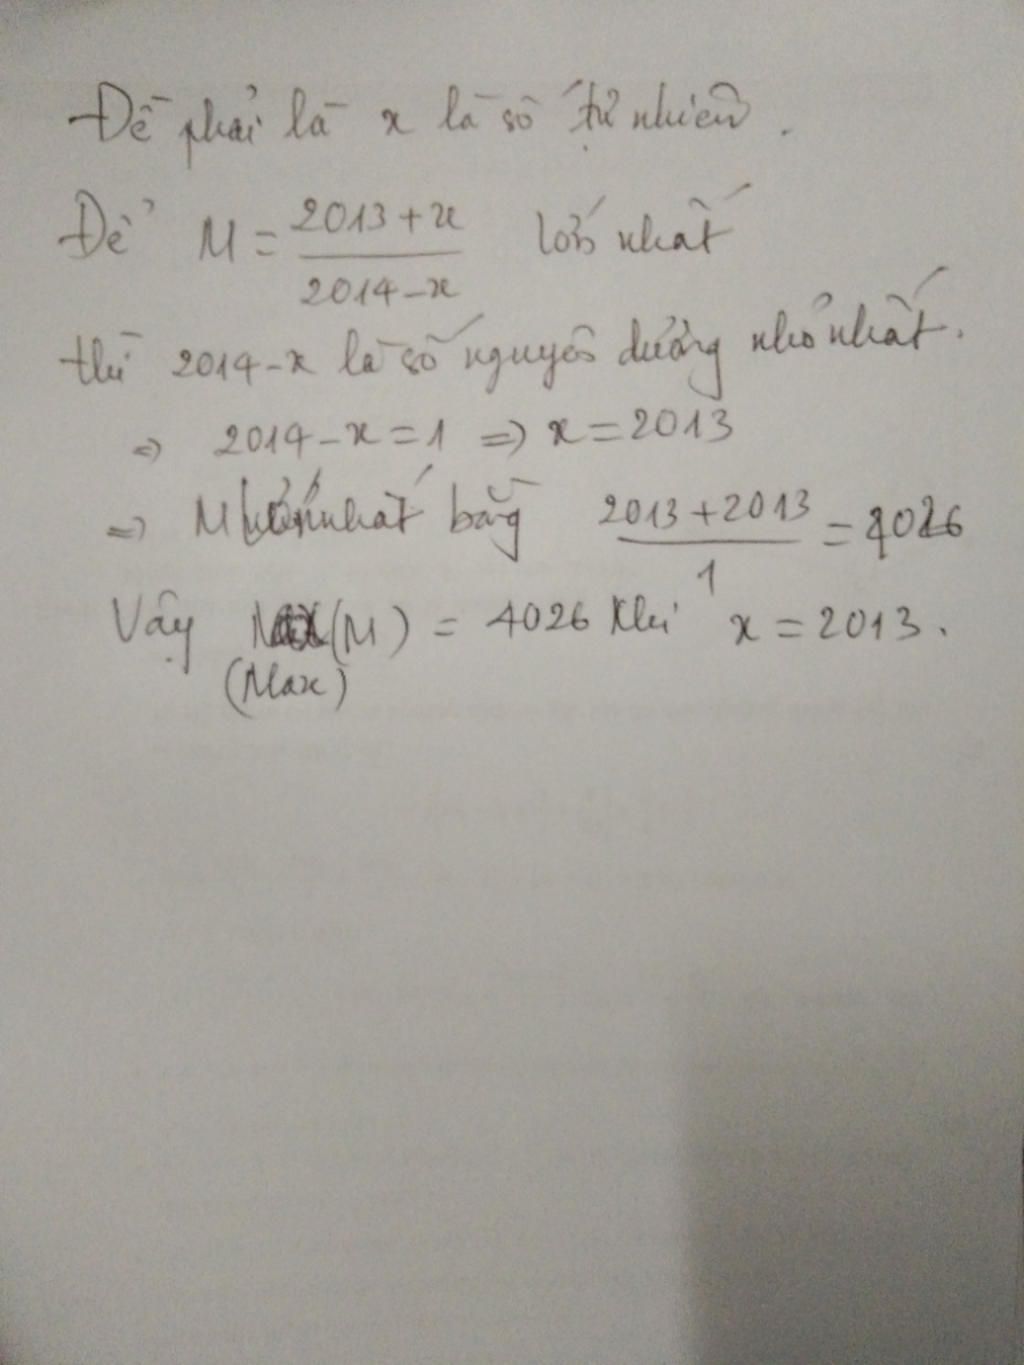 Đề phải là x là số tự nhiên.
Để M = (2013+x)/(2014-x) lớn nhất
thì 2014-x là số nguyên dương nhỏ nhất.
=> 2014-x=1 => x=2013
=> M lớn nhất bằng (2013+2013)/1 = 4026
Vậy Max(M) = 4026 khi x = 2013.
(Max)